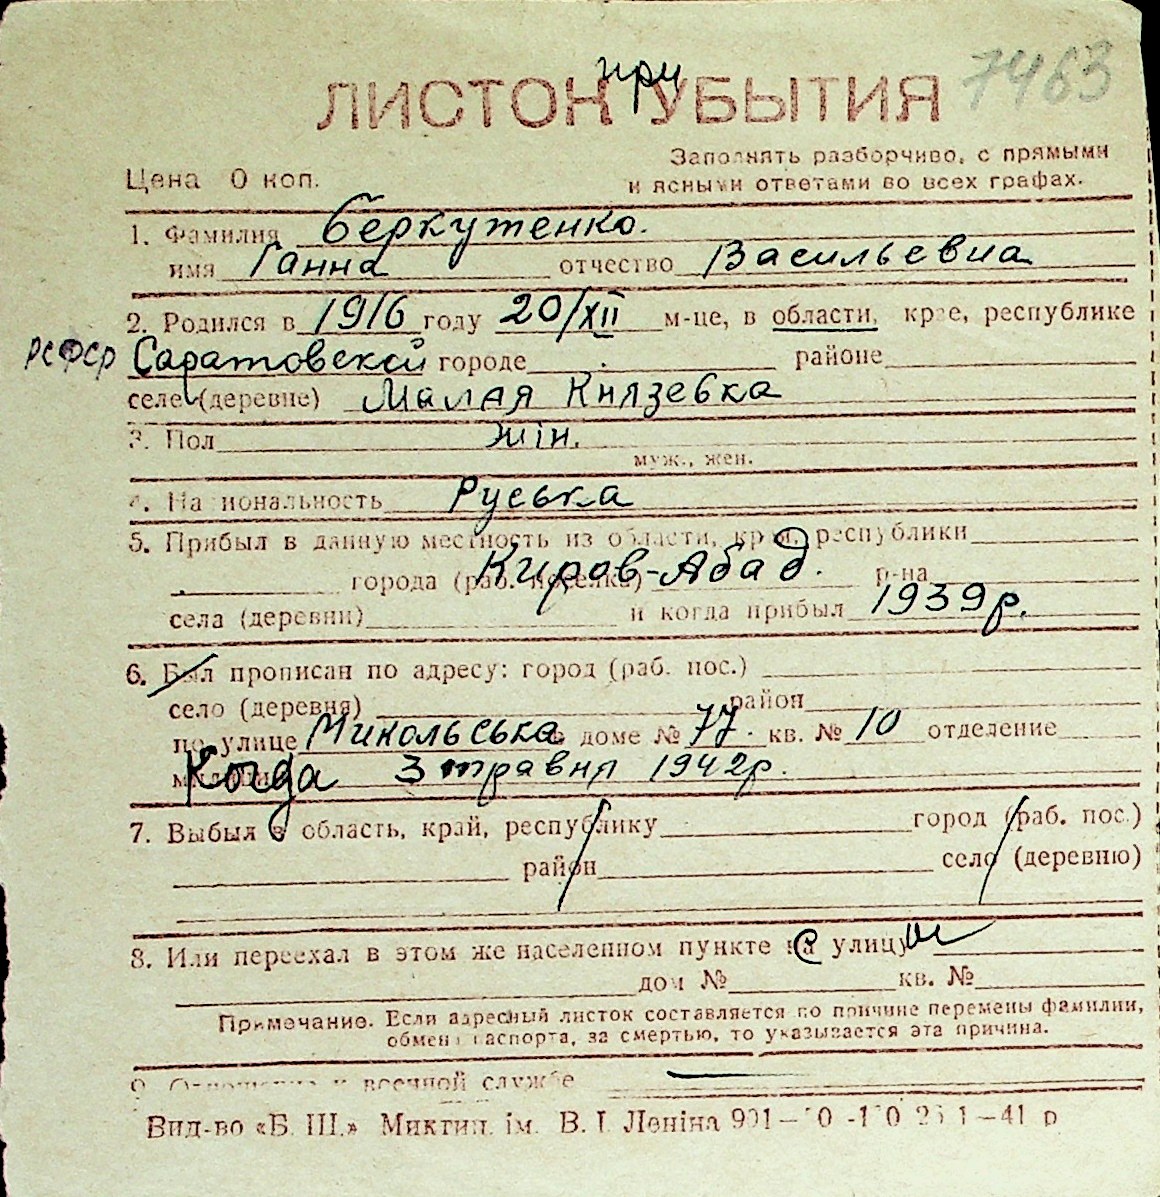 7463
ЛИСТОК при УБЫТИЯ
Заполнять разборчиво, с прямыми
Цена 0 коп. и ясными ответами во всех графах.
1. Фамилия Беркутенко.
имя Ганна отчество Васильевна
2. Родился в 1916 году 20/XII м-це, в области, крае, республике
РСФСР Саратовской городе районе
селе (деревне) Малая Князевка
3. Пол жін.
муж., жен.
4. Национальность Руська
5. Прибыл в данную местность из области, края, республики
города (раб. поселка) Киров-Абад. р-на
села (деревни) и когда прибыл 1939р.
6. Был прописан по адресу: город (раб. пос.)
село (деревня) район
по улице Микольська в доме № 77. кв. № 10 отделение
милиции Когда 3 травня 1942р.
7. Выбыл в область, край, республику город (раб. пос.)
район село (деревню)
8. Или переехал в этом же населенном пункте на с улицу ы
дом № кв. №
Примечание. Если адресный листок составляется по причине перемены фамилии,
обмена паспорта, за смертью, то указывается эта причина.
9. Отношение к военной службе
Вид-во «Б. Ш.» Миктип. ім. В. І. Леніна 41 р